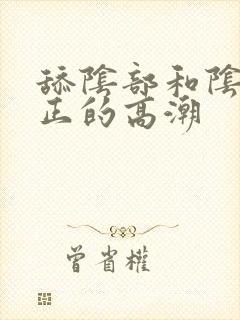 舔陰部和陰
正的高潮
曾省權